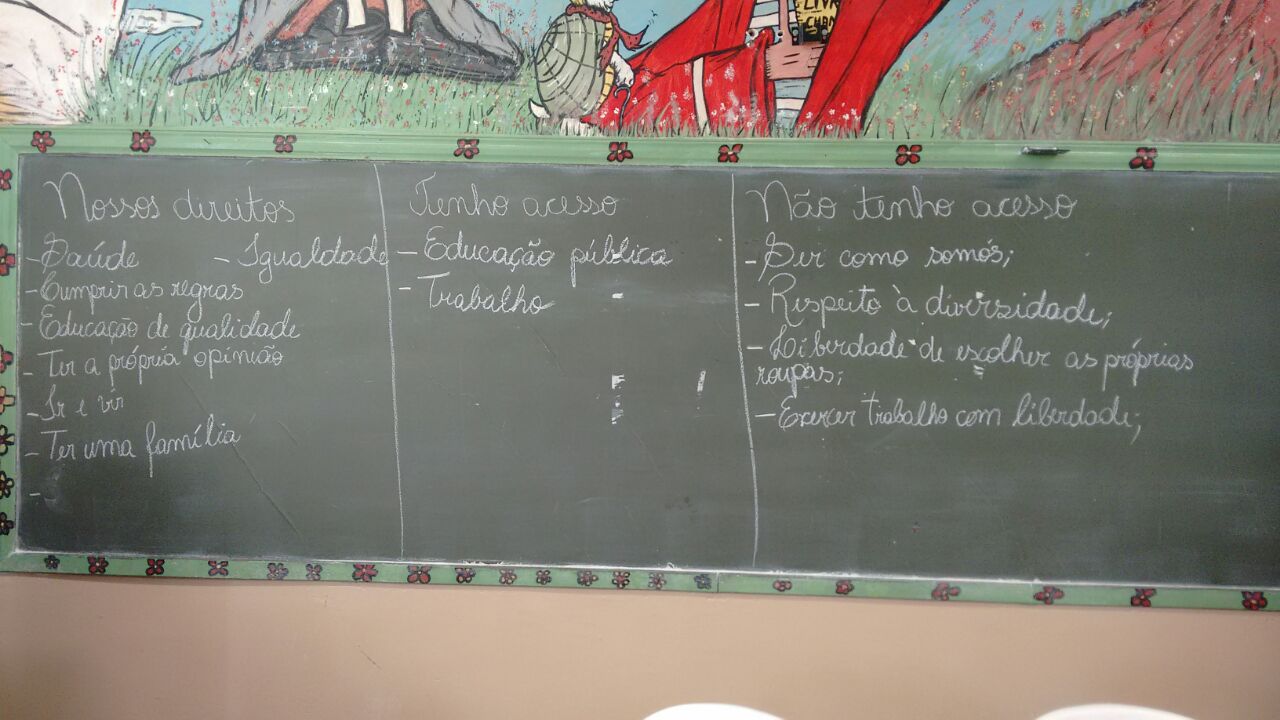 LIVR
CHAN
Nossos direitos
- Saúde - Igualdade
- Cumprir as regras
- Educação de qualidade
- Ter a própria opinião
- Ir e vir
- Ter uma família
-
Tenho acesso
- Educação pública
- Trabalho
Não tenho acesso
- Ser como somós;
- Respeito à diversidade;
- Liberdade de escolher as próprias
roupas;
- Exercer trabalho com liberdade;